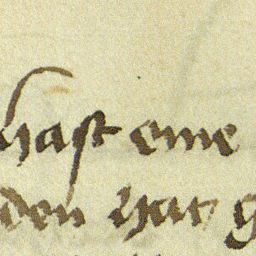 hast eine
den hat g